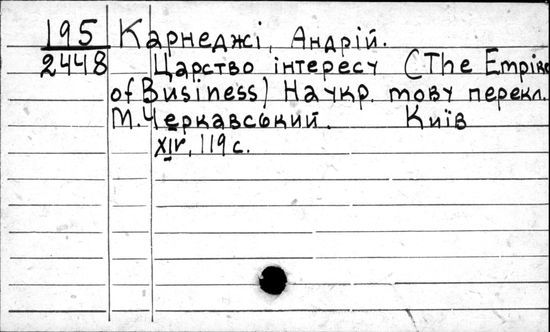 195 Карнеджі, Андрій.
2448 Царство інтересу (The Empire
of Business) На укр. мову перекл.
М. Черкавський. Київ
XIV, 119 с.